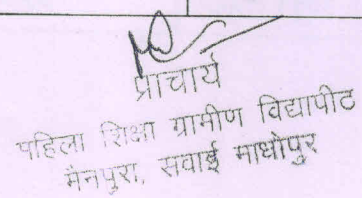 प्राचार्य
महिला शिक्षा ग्रामीण विद्यापीट
मैनपुरा, सवाई माधोपुर